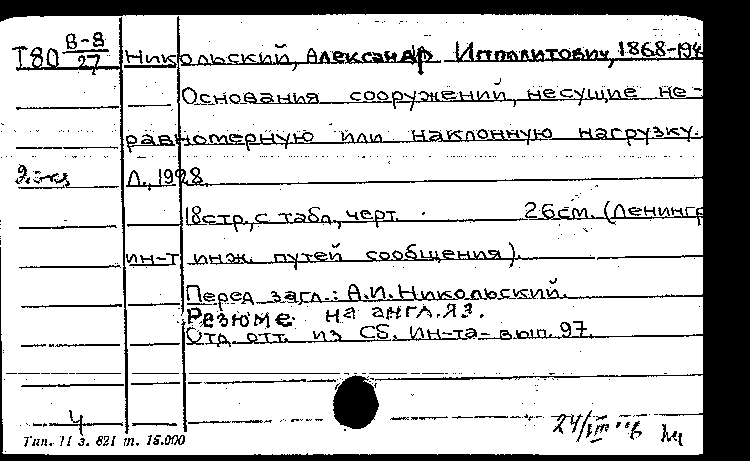 Т80 В-8/27 Никольский, Александр Ипполитович, 1868-194
Основания сооружений, несущие не-
равномерную или наклонную нагрузку.
2 экз Л., 1928.
18стр., с табл., черт. 26см. (Ленингр
ин-т инж. путей сообщения).
Перед загл.: А.И. Никольский.
Резюме на англ. яз.
Отд. отт. из Сб. Ин-та- вып. 97.
4
Тип. 11 з. 821 т. 15.000